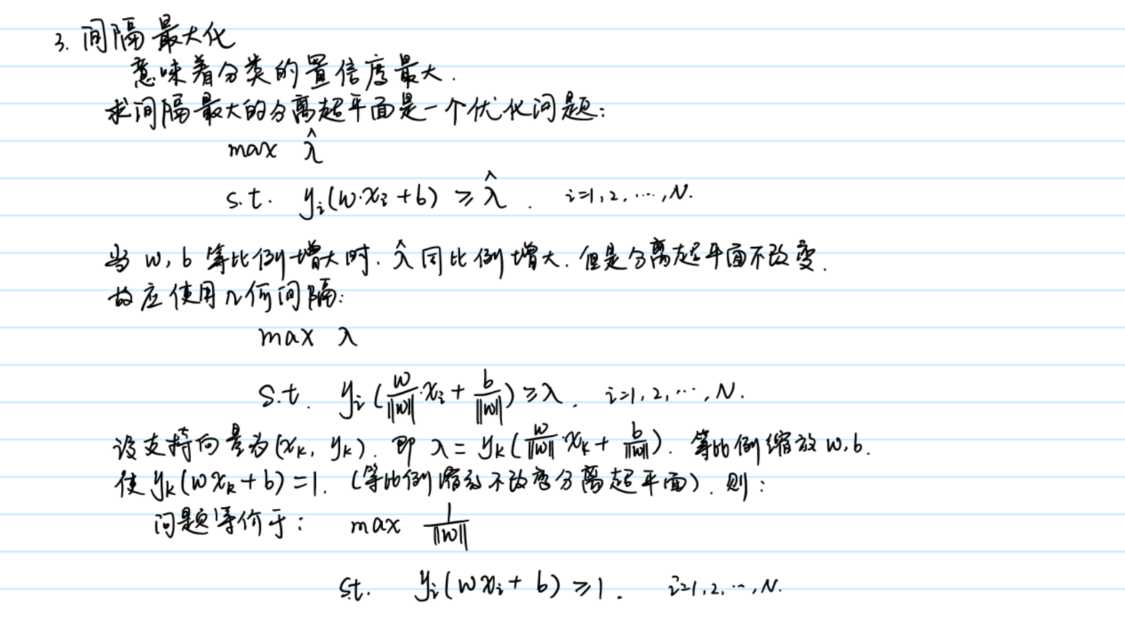 3. 间隔最大化
意味着分类的置信度最大.
求间隔最大的分离超平面是一个优化问题:
max λ̂
s.t. yᵢ(w·xᵢ+b) ≥ λ̂. i=1,2,…,N.
当 w, b 等比例增大时. λ̂ 同比例增大. 但是分离超平面不改变.
故应使用几何间隔:
max λ
s.t. yᵢ(w/‖w‖·xᵢ + b/‖w‖) ≥ λ. i=1,2,…,N.
设支持向量为(xₖ, yₖ). 即 λ = yₖ(w/‖w‖·xₖ + b/‖w‖). 等比例缩放 w, b.
使 yₖ(wxₖ+b)=1. (等比例缩放不改变分离超平面). 则:
问题等价于: max 1/‖w‖
s.t. yᵢ(wxᵢ+b) ≥ 1. i=1,2,…,N.